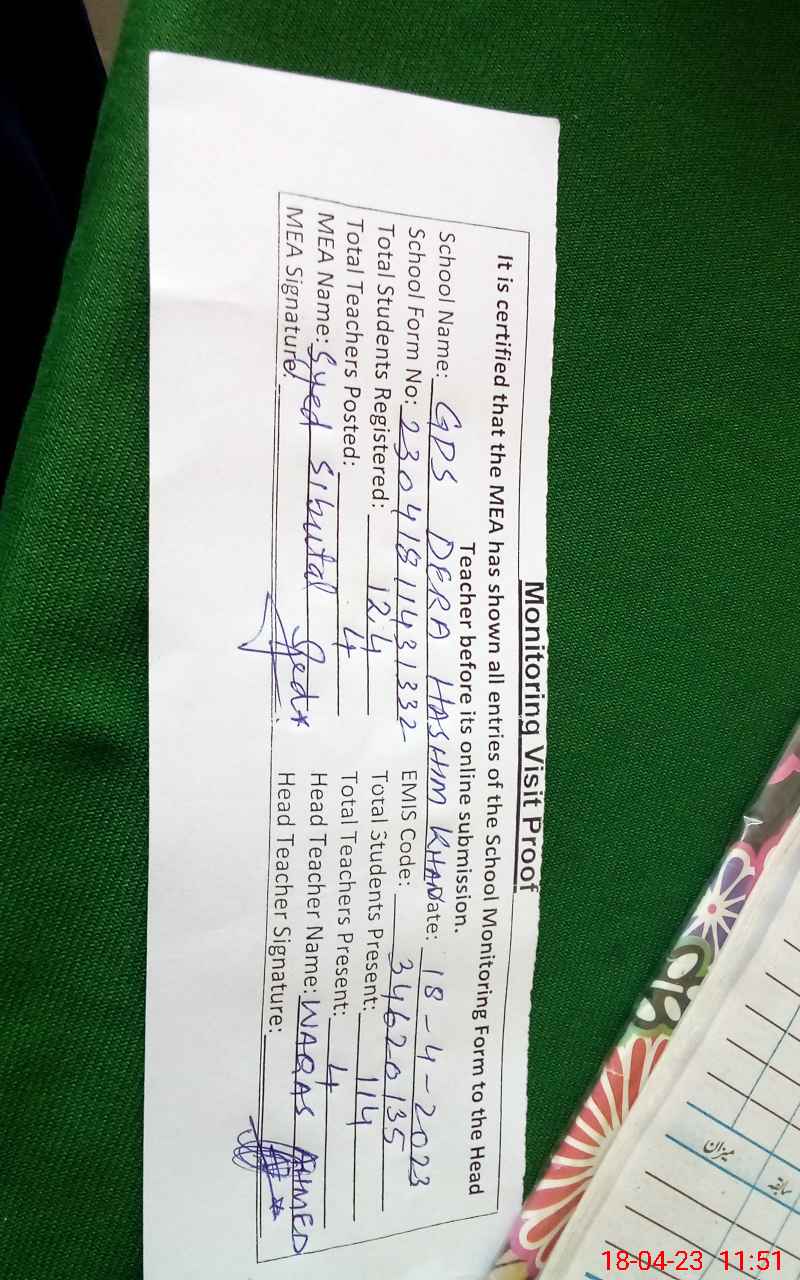 Monitoring Visit Proof
It is certified that the MEA has shown all entries of the School Monitoring Form to the Head
Teacher before its online submission.
School Name: GPS DERA HASHIM KHAN ate: 18-4-2023
School Form No: 23041811431332 EMIS Code: 34620135
Total Students Registered: 124 Total Students Present: 114
Total Teachers Posted: 4 Total Teachers Present: 4
MEA Name: Syed Sibutal Head Teacher Name: WAQAS AHMED
MEA Signature: Head Teacher Signature:
میزان
سابقہ
18-04-23 11:51